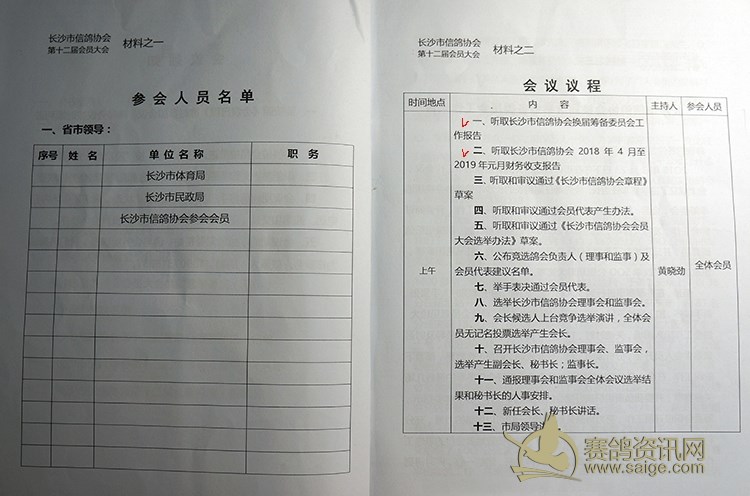 长沙市信鸽协会
第十二届会员大会
材料之一
参会人员名单
一、省市领导：
序号 姓 名 单位名称 职 务
长沙市体育局
长沙市民政局
长沙市信鸽协会参会会员
长沙市信鸽协会
第十二届会员大会
材料之二
会议议程
时间地点 内 容 主持人 参会人员
一、听取长沙市信鸽协会换届筹备委员会工
作报告
二、听取长沙市信鸽协会 2018 年 4 月至
2019 年元月财务收支报告
三、听取和审议通过《长沙市信鸽协会章程》
草案
四、听取和审议通过会员代表产生办法。
五、听取和审议通过《长沙市信鸽协会会员
大会选举办法》草案。
六、公布竞选鸽会负责人（理事和监事）及
会员代表建议名单。
七、举手表决通过会员代表。
八、选举长沙市信鸽协会理事会和监事会。
九、会长候选人上台竞争选举演讲，全体会
员无记名投票选举产生会长。
十、召开长沙市信鸽协会理事会、监事会，
选举产生副会长、秘书长；监事长。
十一、通报理事会和监事会全体会议选举结
果和秘书长的人事安排。
十二、新任会长、秘书长讲话。
十三、市局领导讲
上午
黄晓劲
全体会员
赛鸽资讯网
www.saige.com